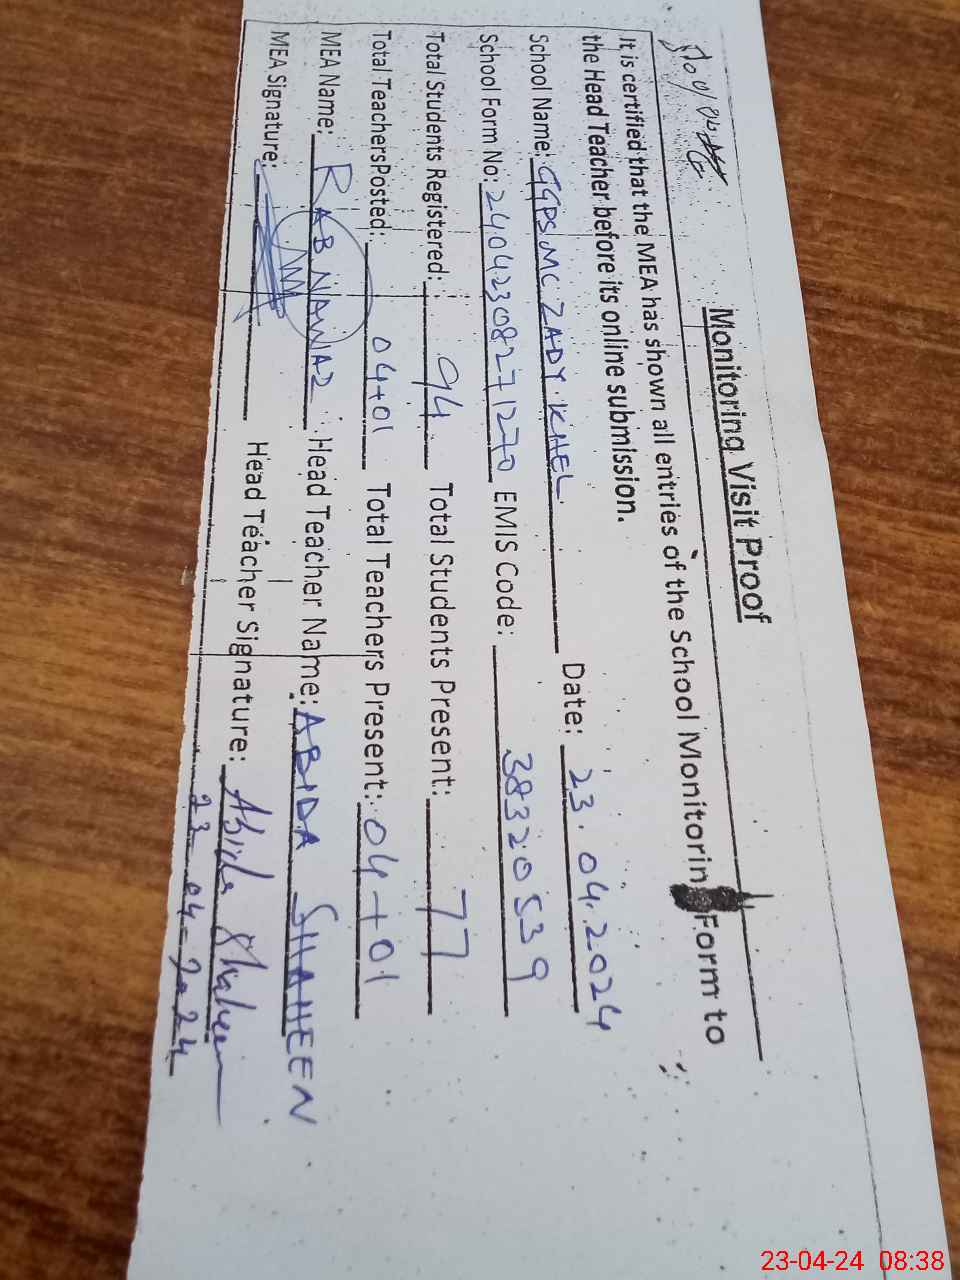 Monitoring Visit Proof
It is certified that the MEA has shown all entries of the School Monitorin Form to
the Head Teacher before its online submission.
School Name: GGPS MC ZADY KHEL Date: 23.04.2024
School Form No: 24042308271270 EMIS Code: 38320539
Total Students Registered: 94 Total Students Present: 77
Total TeachersPosted: 04+01 Total Teachers Present: 04+01
MEA Name: RAB NAWAZ Head Teacher Name: ABIDA SHAHEEN
MEA Signature: Head Teacher Signature: Abida Shaheen
23-04-2024
23-04-24 08:38